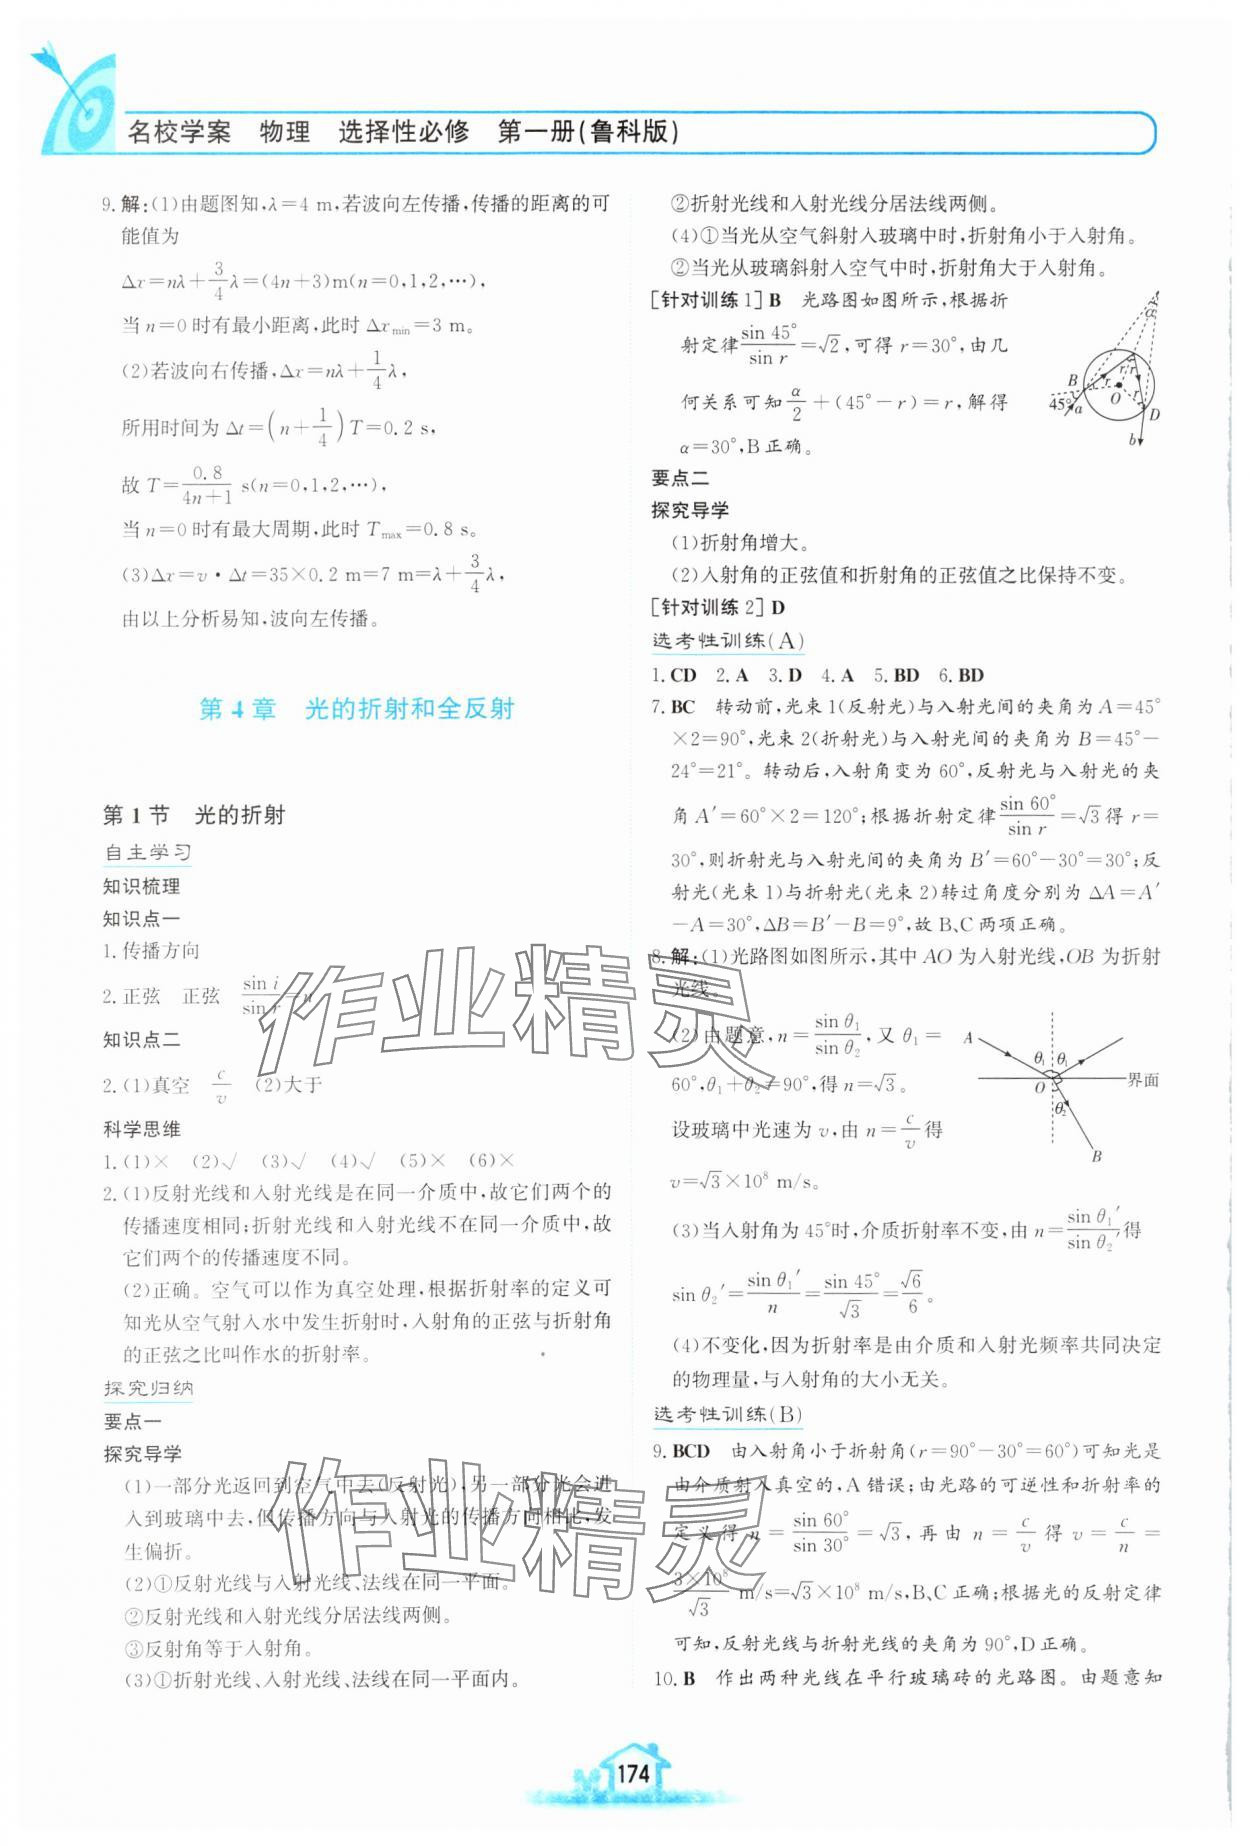 名校学案 物理 选择性必修 第一册(鲁科版)
9.解:(1)由题图知,λ=4 m,若波向左传播,传播的距离的可
能值为
Δx=nλ+3/4λ=(4n+3)m(n=0,1,2,…),
当n=0时有最小距离,此时Δxmin=3 m。
(2)若波向右传播,Δx=nλ+1/4λ,
所用时间为Δt=(n+1/4)T=0.2 s,
故T=0.8/(4n+1) s(n=0,1,2,…),
当n=0时有最大周期,此时Tmax=0.8 s。
(3)Δx=v·Δt=35×0.2 m=7 m=λ+3/4λ,
由以上分析易知,波向左传播。
第4章 光的折射和全反射
第1节 光的折射
自主学习
知识梳理
知识点一
1.传播方向
2.正弦 正弦 sin i/sin r=n
知识点二
2.(1)真空 c/v (2)大于
科学思维
1.(1)× (2)√ (3)√ (4)√ (5)× (6)×
2.(1)反射光线和入射光线是在同一介质中,故它们两个的
传播速度相同;折射光线和入射光线不在同一介质中,故
它们两个的传播速度不同。
(2)正确。空气可以作为真空处理,根据折射率的定义可
知光从空气射入水中发生折射时,入射角的正弦与折射角
的正弦之比叫作水的折射率。
探究归纳
要点一
探究导学
(1)一部分光返回到空气中去(反射光),另一部分光会进
入到玻璃中去,但传播方向与入射光的传播方向相比,发
生偏折。
(2)①反射光线与入射光线、法线在同一平面。
②反射光线和入射光线分居法线两侧。
③反射角等于入射角。
(3)①折射光线、入射光线、法线在同一平面内。
②折射光线和入射光线分居法线两侧。
(4)①当光从空气斜射入玻璃中时,折射角小于入射角。
②当光从玻璃斜射入空气中时,折射角大于入射角。
[针对训练1]B 光路图如图所示,根据折
射定律sin 45°/sin r=√2,可得r=30°,由几
何关系可知α/2+(45°-r)=r,解得
α=30°,B正确。
α
B r r r r
45° a O D
b
要点二
探究导学
(1)折射角增大。
(2)入射角的正弦值和折射角的正弦值之比保持不变。
[针对训练2]D
选考性训练(A)
1.CD 2.A 3.D 4.A 5.BD 6.BD
7.BC 转动前,光束1(反射光)与入射光间的夹角为A=45°
×2=90°,光束2(折射光)与入射光间的夹角为B=45°-
24°=21°。转动后,入射角变为60°,反射光与入射光的夹
角A′=60°×2=120°;根据折射定律sin 60°/sin r=√3得r=
30°,则折射光与入射光间的夹角为B′=60°-30°=30°;反
射光(光束1)与折射光(光束2)转过角度分别为ΔA=A′
-A=30°,ΔB=B′-B=9°,故B、C两项正确。
8.解:(1)光路图如图所示,其中AO为入射光线,OB为折射
光线。
(2)由题意,n=sin θ1/sin θ2,又θ1=
60°,θ1+θ2=90°,得n=√3。
设玻璃中光速为v,由n=c/v得
v=√3×10⁸ m/s。
A θ1 θ1
O 界面
θ2
B
(3)当入射角为45°时,介质折射率不变,由n=sin θ1′/sin θ2′得
sin θ2′=sin θ1′/n=sin 45°/√3=√6/6。
(4)不变化,因为折射率是由介质和入射光频率共同决定
的物理量,与入射角的大小无关。
选考性训练(B)
9.BCD 由入射角小于折射角(r=90°-30°=60°)可知光是
由介质射入真空的,A错误;由光路的可逆性和折射率的
定义得n=sin 60°/sin 30°=√3,再由n=c/v得v=c/n=
3×10⁸/√3 m/s=√3×10⁸ m/s,B、C正确;根据光的反射定律
可知,反射光线与折射光线的夹角为90°,D正确。
10.B 作出两种光线在平行玻璃砖的光路图。由题意知
作业精灵
作业精灵
174